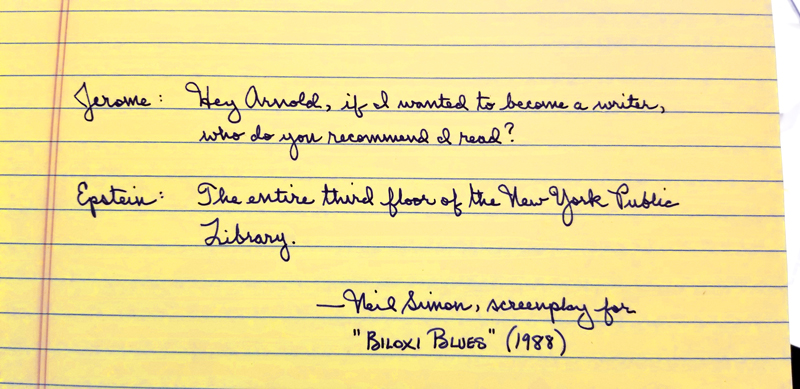 Jerome: Hey Arnold, if I wanted to become a writer,
who do you recommend I read?
Epstein: The entire third floor of the New York Public
Library.
—Neil Simon, screenplay for
"BILOXI BLUES" (1988)